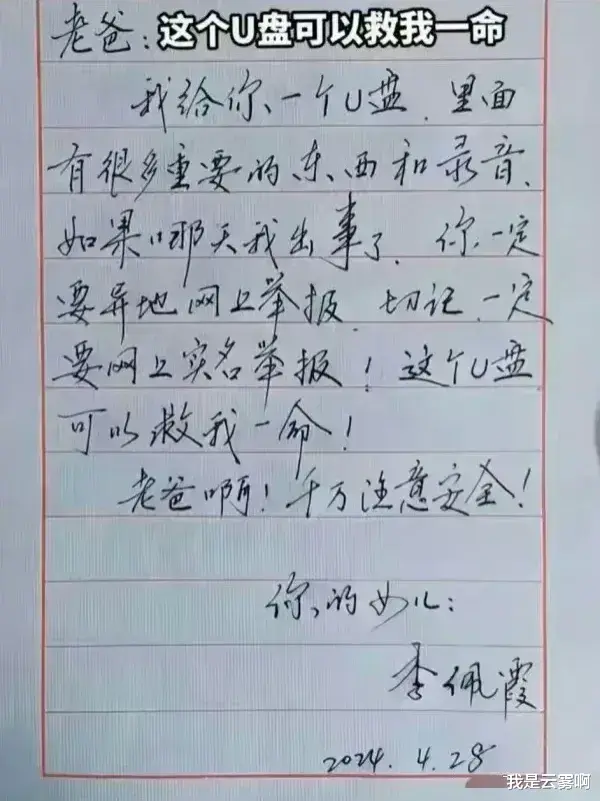 老爸：这个U盘可以救我一命
我给你一个U盘，里面
有很多重要的东西和录音，
如果哪天我出事了，你一定
要异地网上举报，切记，一定
要网上实名举报！这个U盘
可以救我一命！
老爸啊！千万注意安全！
你的女儿：
李佩霞
2024.4.28
我是云雾啊